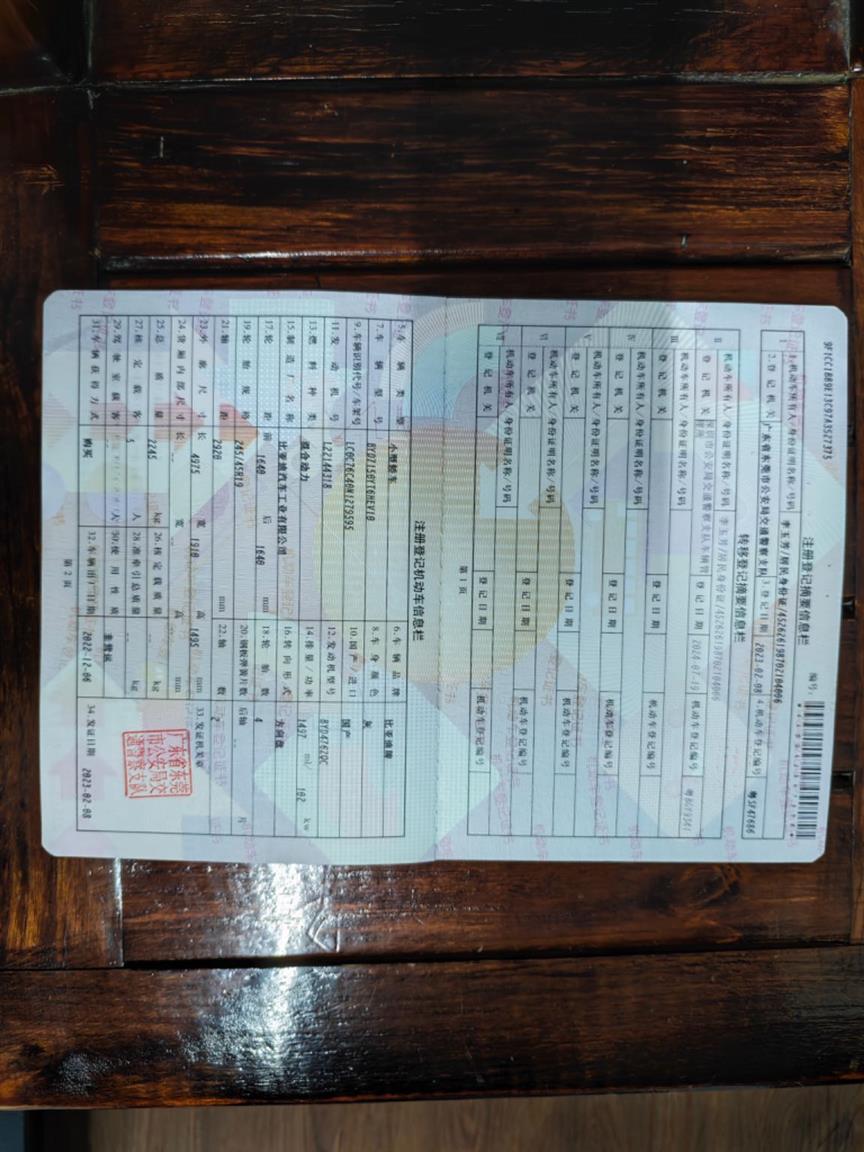 注册登记摘要信息栏
编号:
Ⅰ
1.机动车所有人/身份证明名称/号码 李玉芳/居民身份证/452626198702104006
2.登记机关 广东省东莞市公安局交通警察支队 3.登记日期 2023-02-08 4.机动车登记编号 粤SF47686
转移登记摘要信息栏
Ⅱ
机动车所有人/身份证明名称/号码 李玉芳/居民身份证/452626198702104006
登记机关 深圳市公安局交通警察支队车辆管理所 登记日期 2024-07-19 机动车登记编号
Ⅲ
机动车所有人/身份证明名称/号码
登记机关 登记日期 机动车登记编号
Ⅳ
机动车所有人/身份证明名称/号码
登记机关 登记日期 机动车登记编号
Ⅴ
机动车所有人/身份证明名称/号码
登记机关 登记日期 机动车登记编号
Ⅵ
机动车所有人/身份证明名称/号码
登记机关 登记日期 机动车登记编号
Ⅶ
机动车所有人/身份证明名称/号码
登记机关 登记日期 机动车登记编号
第 1 页
注册登记机动车信息栏
5.车辆类型 小型轿车 6.车辆品牌 比亚迪牌
7.车辆型号 BYD7150YT6HEV1B 8.车身颜色 灰
9.车辆识别代号/车架号 LC0C76C40N1279595 10.国产/进口 国产
11.发动机号 L22144318 12.发动机型号 BYD476ZQC
13.燃料种类 混合动力 14.排量/功率 1497 ml/ 102 kw
15.制造厂名称 比亚迪汽车工业有限公司 16.转向形式 方向盘
17.轮距 前 1640 后 1640 mm 18.轮胎数 4
19.轮胎规格 245/45R19 20.钢板弹簧片数 后轴 -- 片
21.轴距 2920 mm 22.轴数 2
23.外廓尺寸 长 4975 宽 1910 高 1495 mm 33.发证机关章
24.货厢内部尺寸 长 -- 宽 高 mm
25.总质量 2245 kg 26.核定载质量 kg
27.核定载客 5 人 28.准牵引总质量 kg
29.驾驶室载客 人 30.使用性质 非营运
31.车辆获得方式 购买 32.车辆出厂日期 2022-12-06 34.发证日期 2023-02-08
广东省东莞
市公安局交
通警察支队
第 2 页